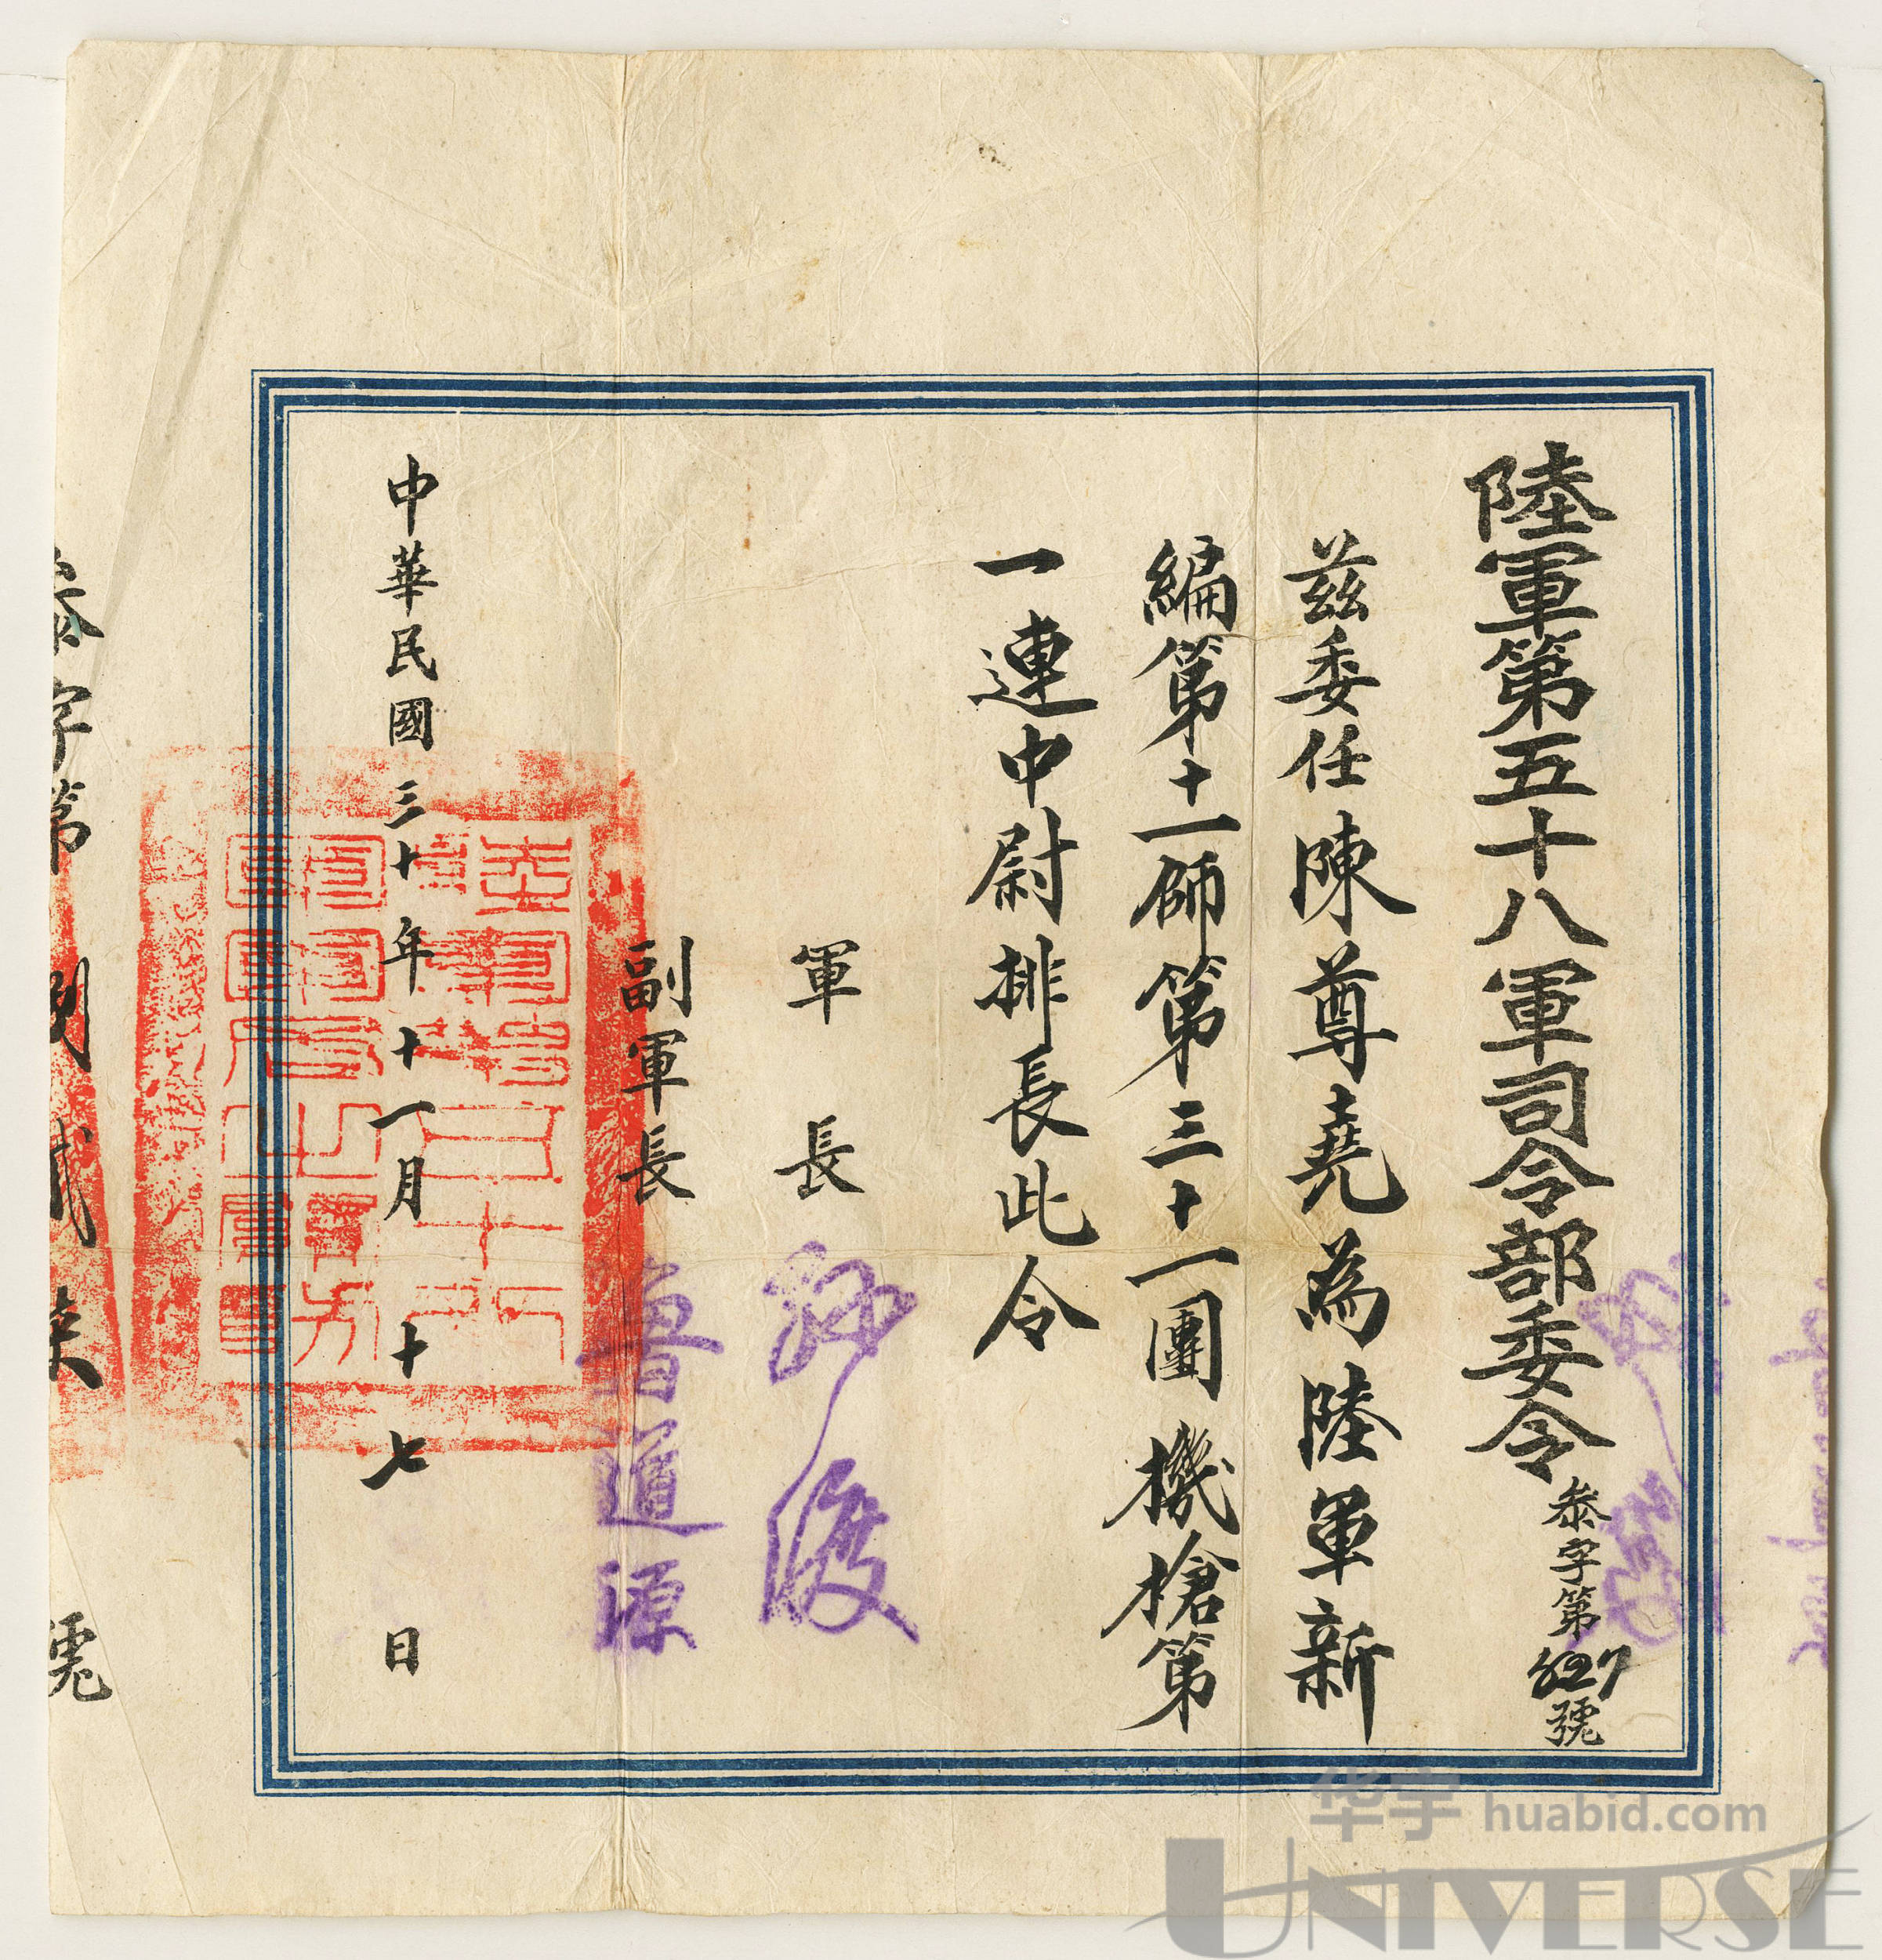 陸軍第五十八軍司令部委令 叅字第627號
茲委任陳尊堯為陸軍新
編第十一師第三十一團機槍第
一連中尉排長此令
軍長 孫渡
副軍長 魯道源
中華民國三十年十一月十七日
叅字第
號
华宇 huabid.com
UNIVERSE